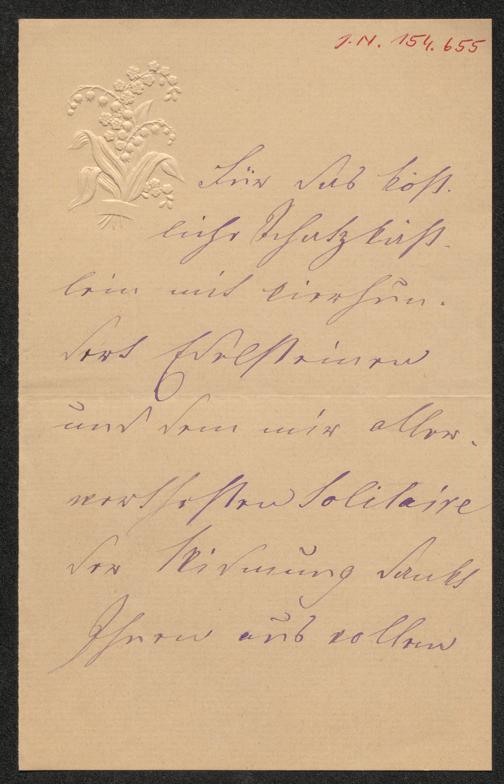 J.N. 154.655
Für das köst-
liche Schatzkäst-
lein mit vierhun-
dert Edelsteinen
und dem mir aller-
werthesten Solitaire
der Widmung dankt
Ihnen aus vollem